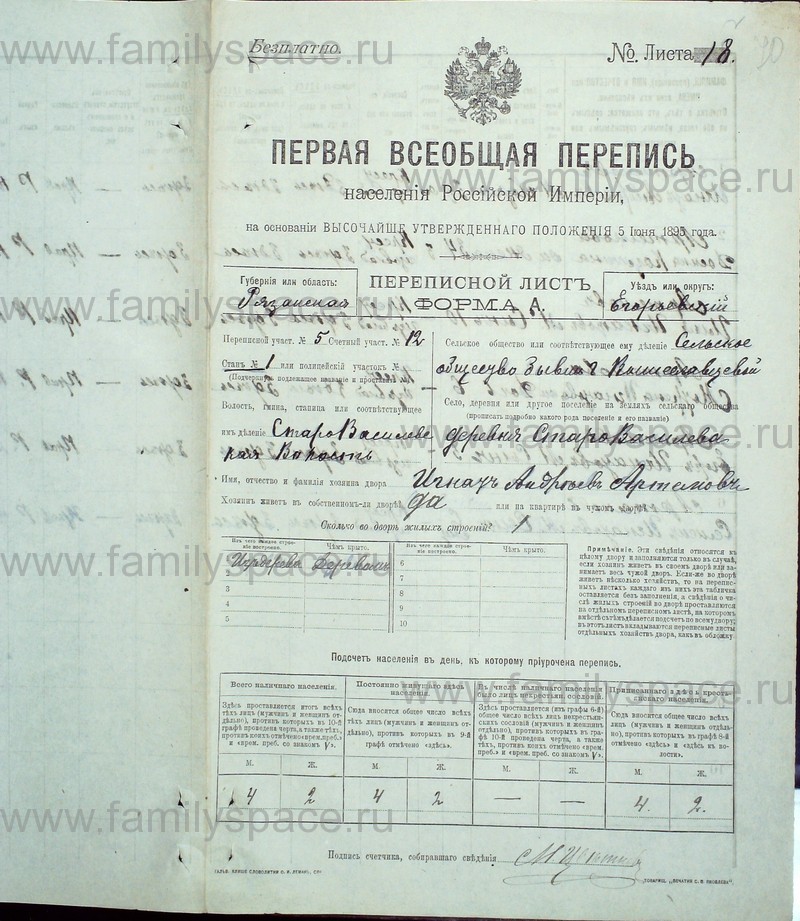 Безплатно.
№ Листа 18.
ПЕРВАЯ ВСЕОБЩАЯ ПЕРЕПИСЬ
населенія Россійской Имперіи,
на основаніи ВЫСОЧАЙШЕ УТВЕРЖДЕННАГО ПОЛОЖЕНІЯ 5 Іюня 1895 года.
Губернія или область:
Рязанская
ПЕРЕПИСНОЙ ЛИСТЪ
ФОРМА А.
Уѣздъ или округъ:
Егорьевскій
Переписной участ. № 5 Счетный участ. № 12
Станъ № 1 или полицейскій участокъ №
(Подчеркнуть подлежащее названіе и проставить №)
Волость, гмина, станица или соотвѣтствующее
имъ дѣленіе СтароВасилевс
кая Волость
Сельское общество или соотвѣтствующее ему дѣленіе Сельское
общество
Село, деревня или другое поселеніе на земляхъ сельскаго общества
(прописать подробно какого рода поселеніе и его названіе)
деревня СтароВасилева
Имя, отчество и фамилія хозяина двора Игнатъ
Хозяинъ живетъ въ собственномъ-ли дворѣ? да или на квартирѣ въ чужомъ дворѣ?
Сколько во дворѣ жилыхъ строеній? 1
Изъ чего каждое строеніе построено.
Чѣмъ крыто.
Изъ чего каждое строеніе построено.
Чѣмъ крыто.
2
3
4
5
6
7
8
9
10
Примѣчаніе. Эти свѣдѣнія относятся къ
цѣлому двору и заполняются только въ случаѣ,
если хозяинъ живетъ въ своемъ дворѣ или за-
нимаетъ весь чужой дворъ. Если-же во дворѣ
живетъ нѣсколько хозяйствъ, то на перепис-
ныхъ листахъ каждаго изъ нихъ эта табличка
оставляется безъ заполненія, а свѣдѣнія о чи-
слѣ жилыхъ строеній во дворѣ проставляются
на отдѣльномъ переписномъ листѣ, на которомъ
вмѣстѣ съ тѣмъ дѣлается подсчетъ по всему двору;
въ этотъ листъ вкладываются переписные листы
отдѣльныхъ хозяйствъ двора, какъ въ обложку.
Подсчетъ населенія въ день, къ которому пріурочена перепись.
Всего наличнаго населенія.
Здѣсь проставляется итогъ всѣхъ
тѣхъ лицъ (мужчинъ и женщинъ от-
дѣльно), противъ которыхъ въ 10-й
графѣ проведена черта, а также тѣхъ,
противъ коихъ отмѣчено «врем. преб.»
и «врем. преб. со знакомъ V».
Постоянно живущаго здѣсь
населенія.
Сюда вносится общее число всѣхъ
тѣхъ лицъ (мужчинъ и женщинъ от-
дѣльно), противъ которыхъ въ 9-й
графѣ отмѣчено «здѣсь».
Въ числѣ наличнаго населенія
было лицъ некрестьян. сословій.
Здѣсь проставляется (изъ графы 6-й)
общее число всѣхъ лицъ некрестьян-
скихъ сословій (мужчинъ и женщинъ
отдѣльно), противъ которыхъ въ
графѣ 10-й проведена черта, а также
тѣхъ, противъ коихъ отмѣчено «врем.
преб.» и «врем. преб. со знакомъ V».
Приписаннаго здѣсь кресть-
янскаго населенія.
Сюда вносится общее число всѣхъ
лицъ (мужчинъ и женщинъ отдѣль-
но), противъ которыхъ въ графѣ 8-й
отмѣчено «здѣсь» и «здѣсь въ во-
лости».
М. Ж. М. Ж. М. Ж. М. Ж.
4 2 4 2 — — 4. 2.
Подпись счетчика, собиравшаго свѣдѣнія
www.familyspace.ru